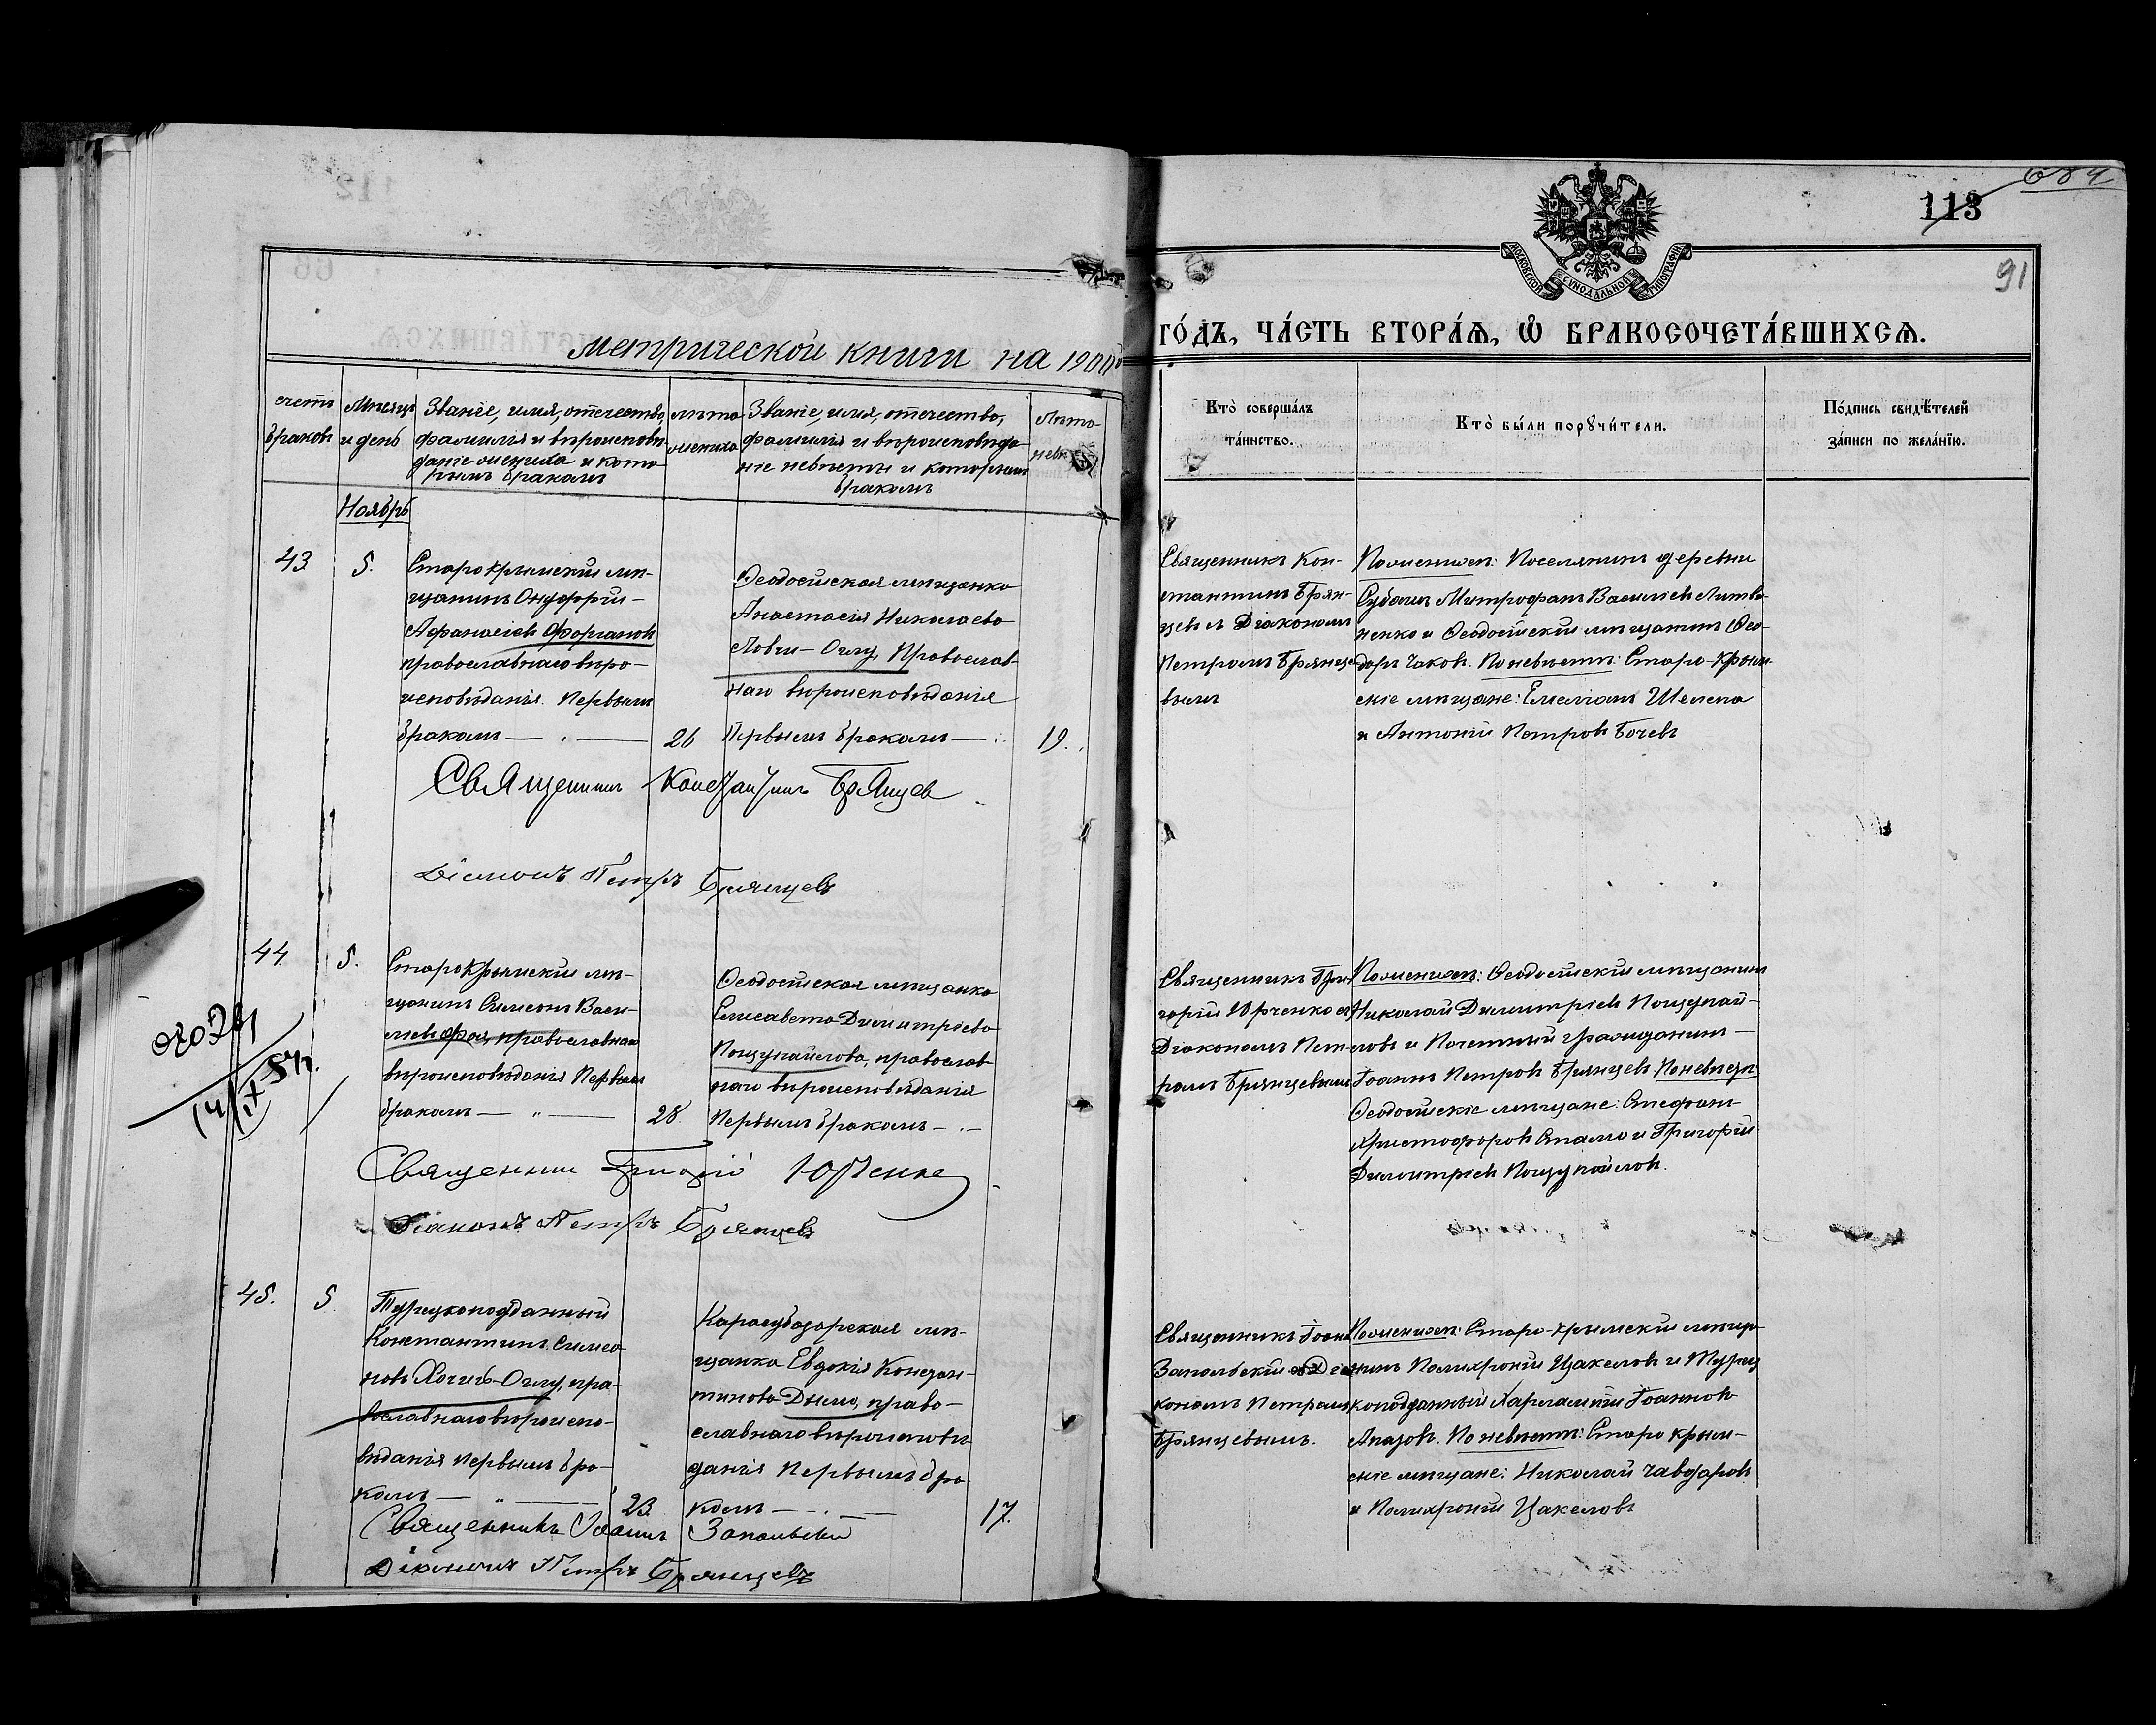 113
91
метрической книги на 1900й
го́дъ, ча́сть втора́ѧ, ѡ҆ бракосочета́вшихсѧ.
МОСКОВСКОЙ СѴНОДАЛЬНОЙ ТИПОГРАФІИ
счетъ
браковъ
Мѣсяцъ
и день
Званіе, имя, отечество,
фамилія и вѣроисповѣ-
даніе жениха и кото-
рымъ бракомъ
лѣта
жениха
Званіе, имя, отечество,
фамилія и вѣроисповѣда-
ніе невѣсты и которымъ
бракомъ
Лѣта
нев.
Кто̀ соверша́лъ
та́инство.
Кто̀ бы́ли порꙋчи́тели.
По́дпись свидѣ́телей
за́писи по жела́нїю.
Ноябрь
43
5.
Старокрымскій мѣ-
щанинъ Онуфрій
Афанасіевъ
православнаго вѣро-
исповѣданія. Первымъ
бракомъ — " —
26
Ѳеодосійская мѣщанка
Анастасія Николаева
Оглу, Православ-
наго вѣроисповѣданія
Первымъ бракомъ —
19.
Священникъ Кон-
стантинъ Брян-
цевъ съ Діакономъ
Петромъ Брянце-
вымъ
По женихѣ: Поселянинъ деревни
Митрофанъ Васильевъ Литви-
ненко и Ѳеодосійскій мѣщанинъ Ѳео-
доръ Чаковъ. По невѣстѣ: Старо-Крым-
скіе мѣщане: Емеліанъ Шелепа
и Антоній Петровъ Бочевъ
Священникъ Константинъ Брянцев
Діаконъ Петръ Брянцевъ
44.
5.
Старокрымскій мѣ-
щанинъ Симеонъ Васи-
льевъ православнаго
вѣроисповѣданія Первымъ
бракомъ — " —
28.
Ѳеодосійская мѣщанка
Елисавета Димитріева
Пощупайлова, православ-
наго вѣроисповѣданія
Первымъ бракомъ —
Священникъ Гри-
горій Юрченко съ
Діакономъ Пет-
ромъ Брянцевымъ
По женихѣ: Ѳеодосійскій мѣщанинъ
Николай Димитріевъ Пощупай-
ловъ и Почетный гражданинъ
Іоаннъ Петровъ Брянцевъ По невѣстѣ
Ѳеодосійскіе мѣщане: Стефанъ
Христофоровъ Стамо и Григорій
Димитріевъ Пощупайловъ.
Священник Григорій Юрченко
Діаконъ Петръ Брянцевъ
45.
5
Турецкоподданный
Константинъ Симео-
новъ Оглу, пра-
вославнаго вѣроиспо-
вѣданія первымъ бра-
комъ — " —
23.
Карасубазарская мѣ-
щанка Евдокія Констан-
тинова Дымо, право-
славнаго вѣроисповѣ-
данія Первымъ бра
комъ —
17.
Священникъ Іоаннъ
Запольскій съ Діа-
кономъ Петромъ
Брянцевымъ.
По женихѣ: Старо-крымскій мѣща-
нинъ Полихроній Цакеловъ и Турец-
коподданный Харлампій Іоанновъ
Апазовъ. По невѣстѣ: Старокрым-
скіе мѣщане: Николай Чавдаровъ
и Полихроній Цакеловъ
Священникъ Іоаннъ Запольскій
Діаконъ Петръ Брянцевъ